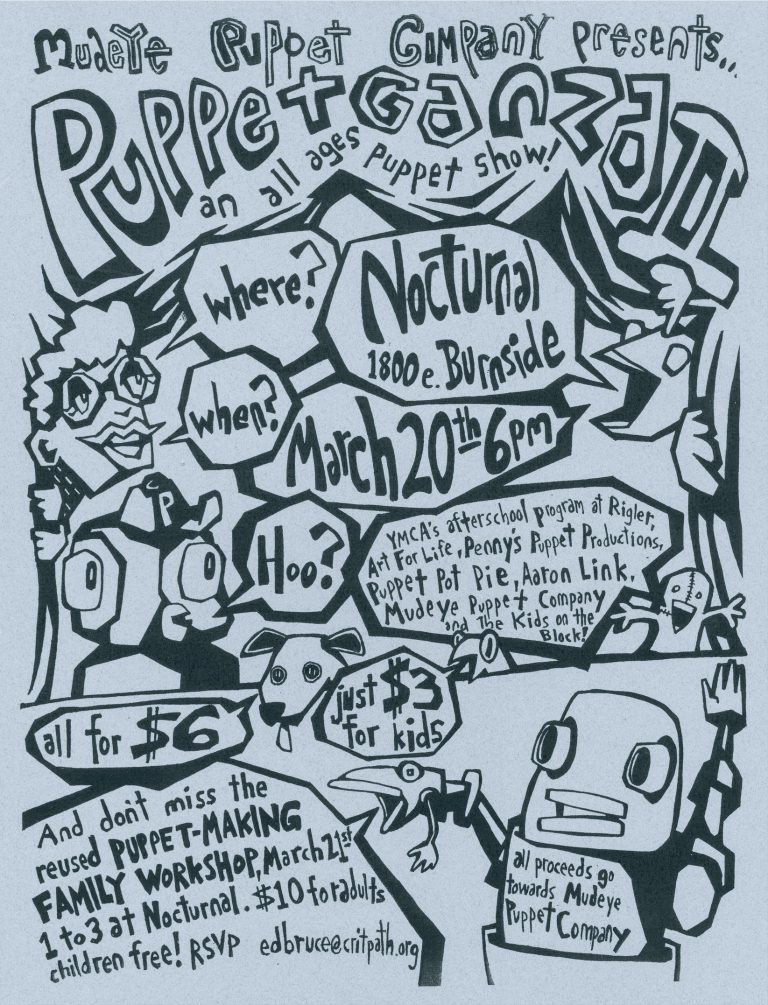 Mudeye Puppet Company presents...
Puppetganza II
an all ages puppet show!
where?
Nocturnal
1800 e. Burnside
when?
March 20th 6pm
P
Hoo?
YMCA's afterschool program at Rigler,
Art For Life, Penny's Puppet Productions,
Puppet Pot Pie, Aaron Link,
Mudeye Puppet Company
and The Kids on the
Block!
all for $6
just $3
for kids
And don't miss the
reused PUPPET-MAKING
FAMILY WORKSHOP, March 21st
1 to 3 at Nocturnal. $10 for adults
children free! RSVP edbruce@critpath.org
all proceeds go
towards Mudeye
Puppet Company